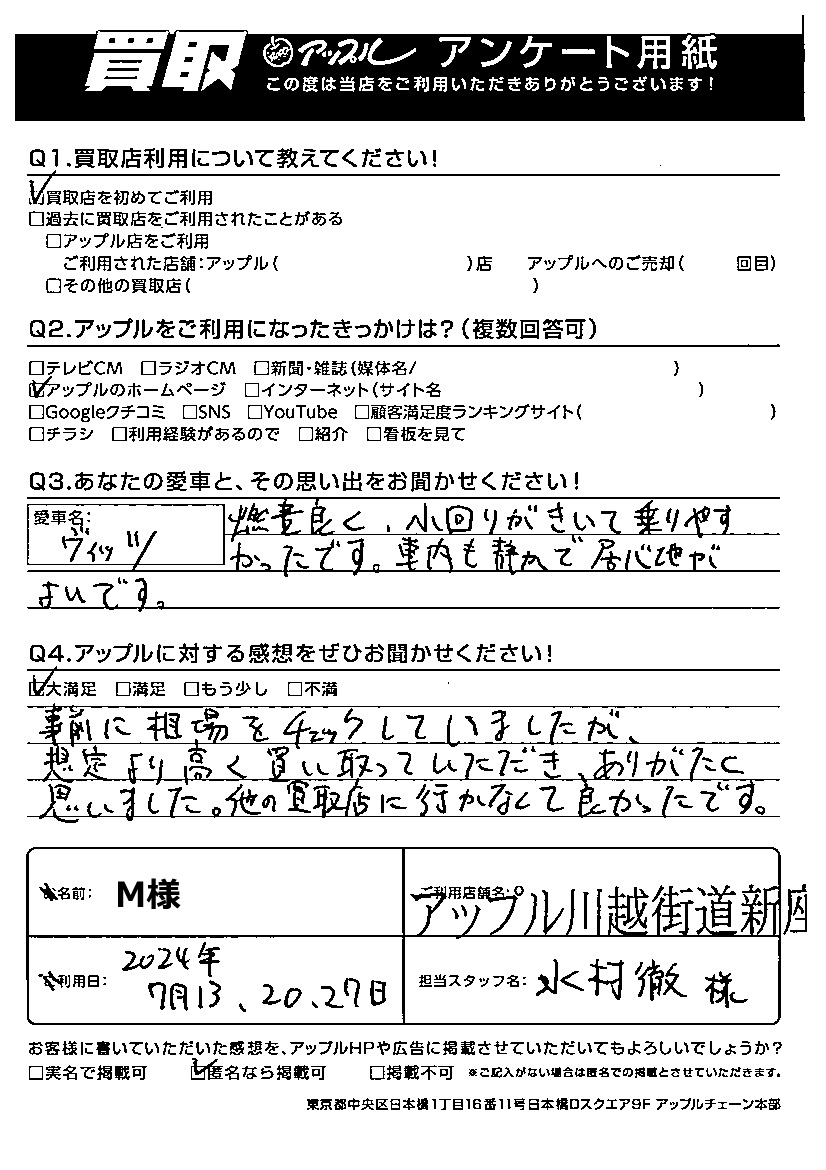 買取 アップル アンケート用紙
この度は当店をご利用いただきありがとうございます!
Q1.買取店利用について教えてください!
☑買取店を初めてご利用
□過去に買取店をご利用されたことがある
□アップル店をご利用
ご利用された店舗:アップル( )店 アップルへのご売却( 回目)
□その他の買取店( )
Q2.アップルをご利用になったきっかけは?(複数回答可)
□テレビCM □ラジオCM □新聞・雑誌(媒体名/ )
☑アップルのホームページ □インターネット(サイト名 )
□Googleクチコミ □SNS □YouTube □顧客満足度ランキングサイト( )
□チラシ □利用経験があるので □紹介 □看板を見て
Q3.あなたの愛車と、その思い出をお聞かせください!
愛車名:
ヴィッツ
燃費良く、小回りがきいて乗りやす
かったです。車内も静かで居心地が
よいです。
Q4.アップルに対する感想をぜひお聞かせください!
☑大満足 □満足 □もう少し □不満
事前に相場をチェックしていましたが、
想定より高く買い取っていただき、ありがたく
思いました。他の買取店に行かなくて良かったです。
名前: M様
ご利用店舗名:
アップル川越街道新座
利用日: 2024年
7月13、20、27日
担当スタッフ名: 水村徹 様
お客様に書いていただいた感想を、アップルHPや広告に掲載させていただいてもよろしいでしょうか?
□実名で掲載可 ☑匿名なら掲載可 □掲載不可 ※ご記入がない場合は匿名での掲載とさせていただきます。
東京都中央区日本橋1丁目16番11号日本橋Dスクエア9F アップルチェーン本部